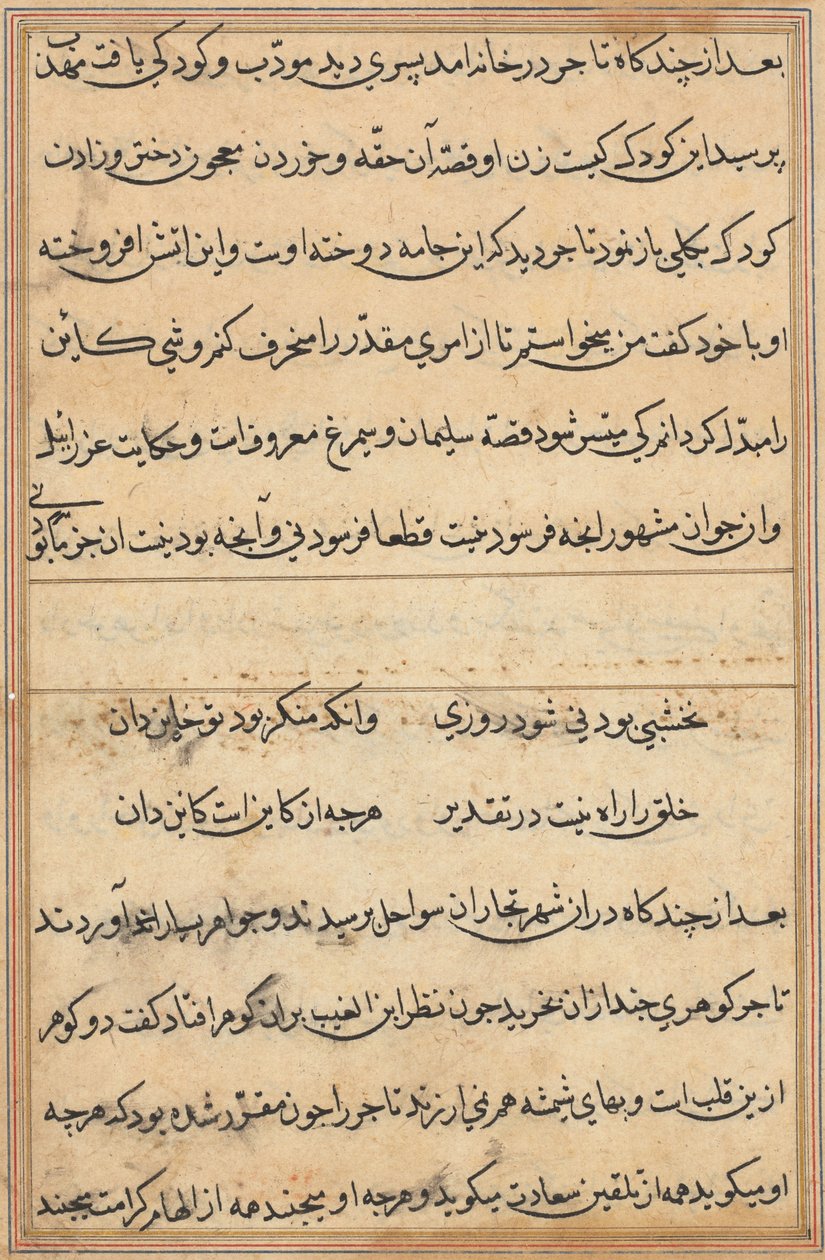 بعد از چند کاه تاجر در خانه امد پسری دید مودّب و کودکی یافت مهذب
پرسید این کودک کیست زن او قصّه آن حقّه و خوردن معجون دختر و زادن
کودک بکلی باز نمود تاجر دید که این جامه دوخته اوست و این اتش افروخته
او با خود کفت من میخواستم تا از امری مقدّر را منحرف کنم و شی کائن
را مبدّل کردانم کی میسر شود قصّه سلیمان و سیمرغ معروف است و حکایت عزرائیل
و ان جوان مشهور انجه فرسود نیست قطعا فرسودنی و آنجه بود نیست ان جز
نخشبی بودنی شود روزی وانکه منکر بود تو خاین دان
خلق را راه نیست در تقدیر هرجه از کاین است کاین دان
بعد از چند کاه در ان شهر تجاران سواحل برسیدند و جواهر بسیار آوردند
تاجر کوهری جند ازان بخرید جون نظر ابن الغیب بران کوهر افتاد کفت دو کوهر
ازین قلب است و بهای شیشه هم نمی ارزند تاجر را جون مقرّر شده بود که هرچه
او میکوید همه از تلقین سعادت میکوید و هرجه او میجنبد همه از الهام کرامت میجنبد